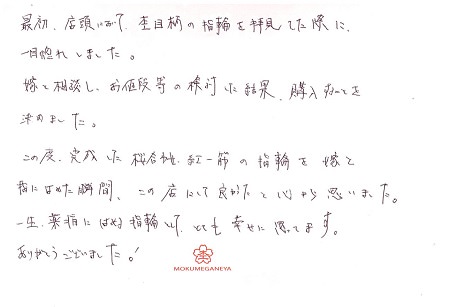 最初、店頭にて、杢目柄の指輪を拝見した際に、
一目惚れしました。
嫁と相談し、お値段等の検討した結果、購入することを
決めました。
この度、完成した桜合せ、紅一筋の指輪を嫁と
指にはめた瞬間、この店にして良かったと心から思いました。
一生、薬指にはめる指輪として、とても幸せに思ってます。
ありがとうございました!
MOKUMEGANEYA